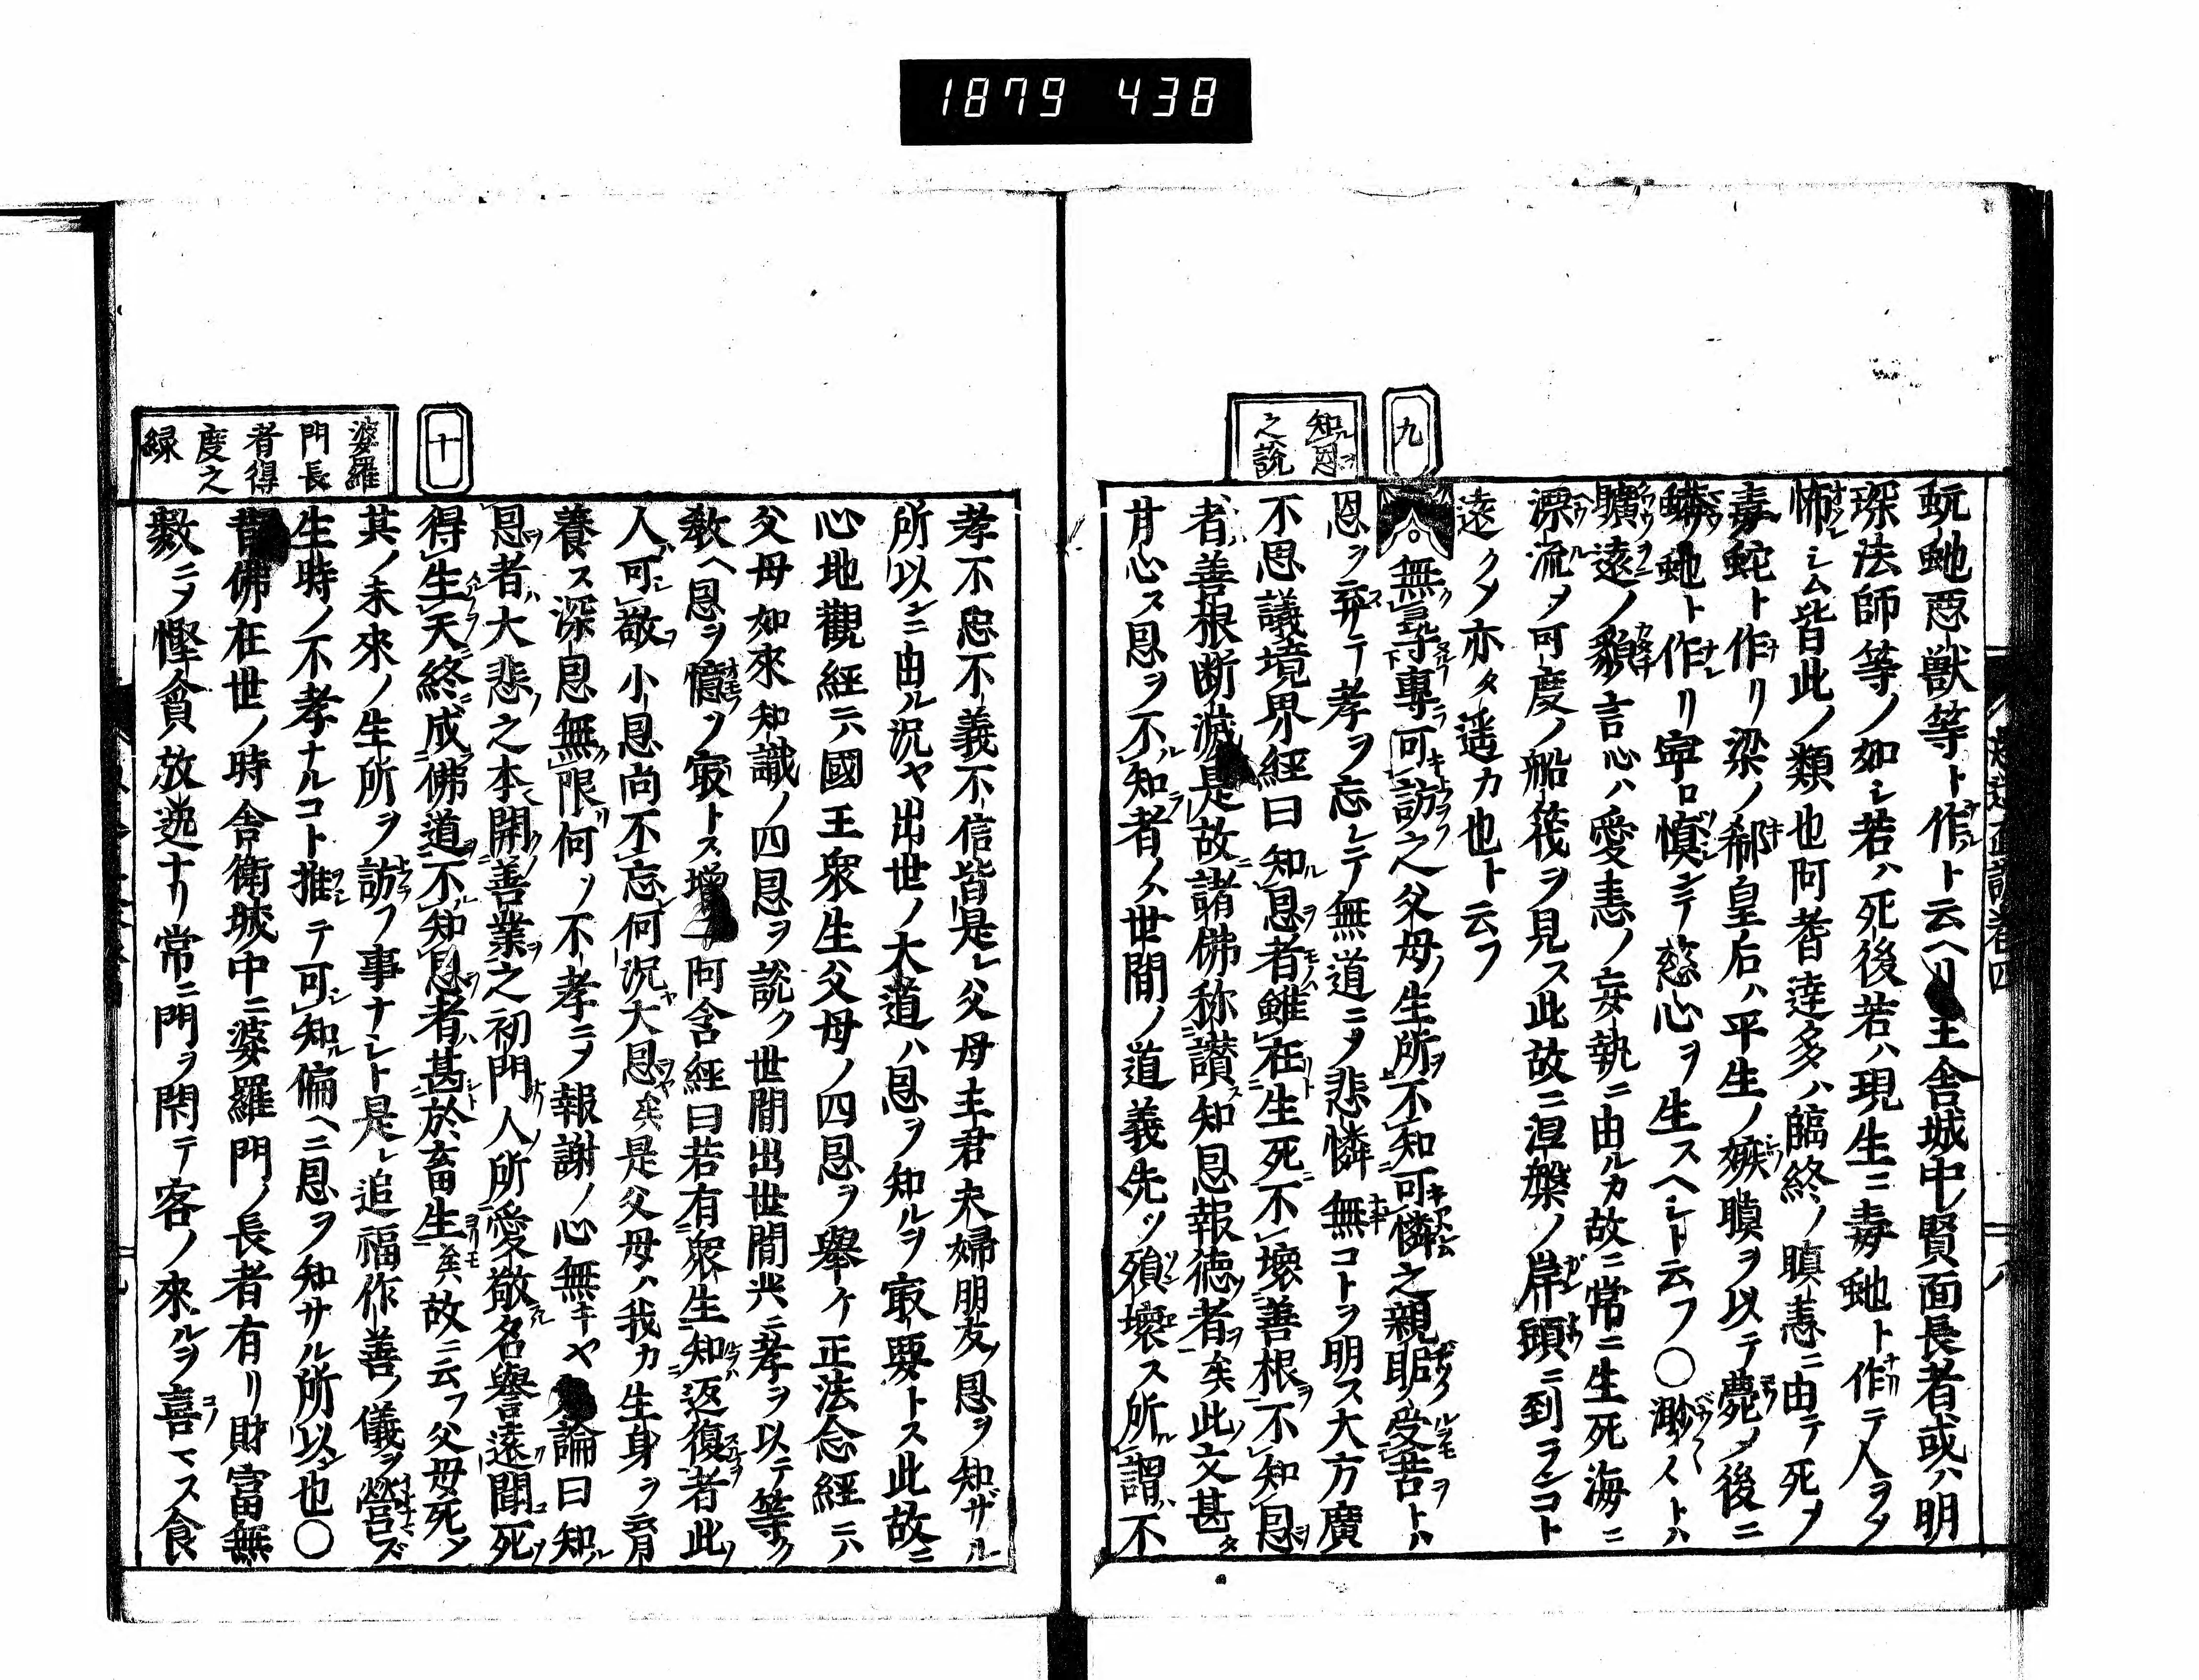 1879 438
蚖虵惡獸等ト作ト云ヘリ王舎城中賢面長者或ハ明
琛法師等ノ如シ若ハ死後若ハ現生ニ毒虵ト作テ人ヲメ
怖シム皆此ノ類也阿耆達多ハ臨終ノ瞋恚ニ由テ死メ
毒蛇ト作リ梁ノ郗皇后ハ平生ノ嫉瞋ヲ以テ薨メ後ニ
蟒虵ト作リ寧ロ慎シテ慈心ヲ生スヘシト云フ〇渺々トハ
曠遠ノ貌言心ハ愛恚ノ妄執ニ由ルカ故ニ常ニ生死海ニ
漂流メ可度ノ船筏ヲ見ス此故ニ涅槃ノ岸頭ニ到ランコト
遠クメ亦タ遥カ也ト云フ
九
知恩之説
無尋専可訪之父母ノ生所不知可憐之親昵受苦トハ
恩ヲ弃テ孝ヲ忘レテ無道ニメ悲憐無コトヲ明ス大方廣
不思議境界經曰知恩者雖在生死不壊善根不知恩
者善根断滅是故諸佛称讃知恩報徳者矣此文甚タ
甘心ス恩ヲ不知者ノハ世間ノ道義先ツ殞壊ス所謂不
孝不忠不義不信皆是レ父母主君夫婦朋友ノ恩ヲ知ザル
所以ンニ由ル況ヤ出世ノ大道ハ恩ヲ知ルヲ㝡要トス此故ニ
心地觀經ニハ國王衆生父母ノ四恩ヲ舉ケ正法念經ニハ
父母如來知識ノ四恩ヲ説ク世間出世間共ニ孝ヲ以テ等ク
教ヘ恩ヲ憶フヲ㝡トス增一阿含經曰若有衆生知返復者此
人可敬小恩尚不忘何況大恩矣是父母ハ我カ生身ヲ育
養ス深恩無限何ソ不孝ニメ報謝ノ心無キヤ論曰知
恩者大悲之本開善業之初門人所愛敬名譽遠聞死
得生天終成佛道不知恩者甚於畜生矣故ニ云フ父母死メ
其ノ未來ノ生所ヲ訪フ事ナシト是レ追福作善ノ儀ヲ營ズ
生時ノ不孝ナルコト推テ可知偏ヘニ恩ヲ知サル所以也〇
十
婆羅門長者得度之緑
昔佛在世ノ時舎衛城中ニ婆羅門ノ長者有リ財富無
數ニメ慳貪放逸ナリ常ニ門ヲ閇テ客ノ來ルヲ喜マス食